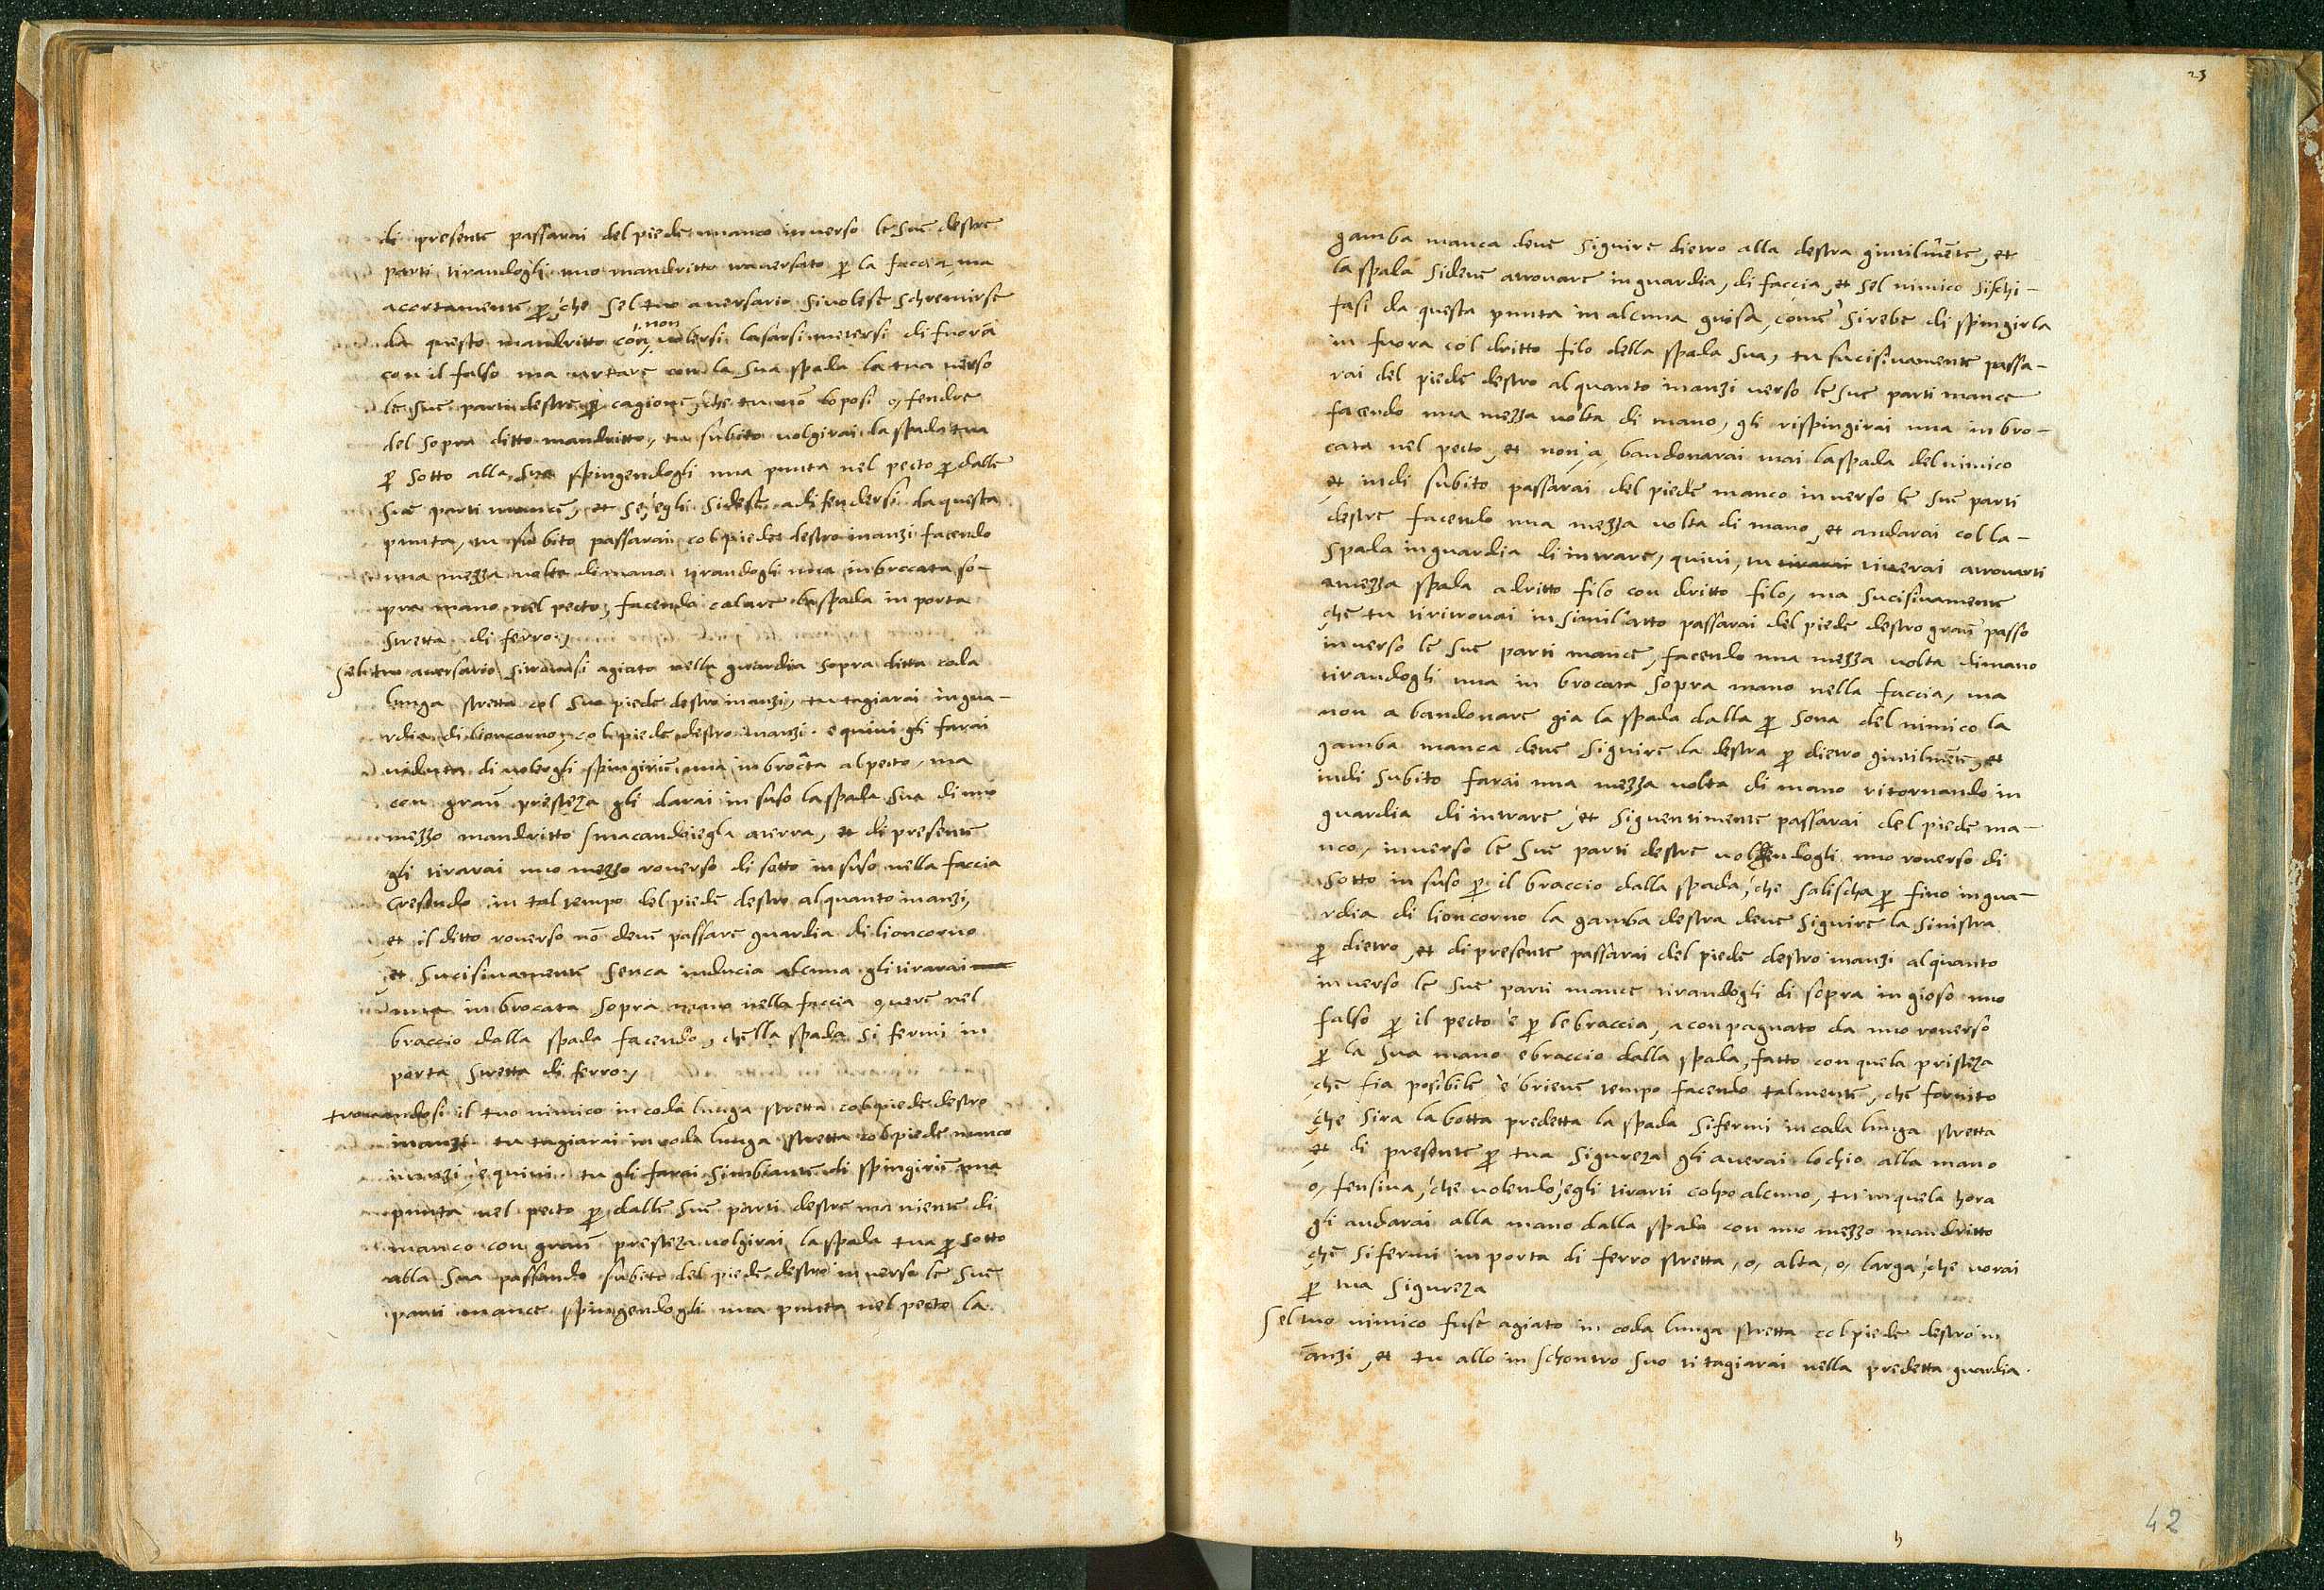 di presente passarai del piede manco inverso le sue destre
parti tirandogli uno mandritto traversato ꝑ la faccia, ma
acortamente ꝑche sel tuo aversario si volese schremirse
da questo mandritto con, non volersi lasarsi metersi di fuora
con il falso ma urtare con la sua spada la tua verso
le sue parti destre ꝑ cagione, che tu nõ lo posi ofendre
del sopra ditto mandritto, tu subito volgirai la spada tua
ꝑ sotto alla sua spingendogli una punta nel pecto ꝑ dalle
sue parti mance, et se egli sidese a difendersi da questa
punta, tu subito passarai col piede destro inanzi facendo
una mezza volta di mano tirandogli una inbrocata so-
pra mano nel pecto, facendo calare la spada in porta
stretta di ferro,
Sel tuo aversario si trovasi agiato nella guardia sopra ditta coda
lunga stretta col suo piede destro inanzi, tu tagiarai in gua-
rdia di lioncorno, col piede destro inanzi. e quivi gli farai
veduta di volergli spingirie una inbrocâta al pecto, ma
con grañ presteza gli darai in suso la spada sua di uno
mezzo mandritto smacandoiegla aterra, et di presente
gli tirarai uno mezzo roverso di sotto in suso nella faccia
cresendo in tal tempo del piede destro alquanto inanzi,
et il ditto roverso nõ deve passare guardia di lioncorno
et sucisivamente senca inducia alcuna gli tirarai
una inbrocata sopra mano nella faccia overe nel
braccio dalla spada facendo, che lla spada si fermi in
porta stretta di ferro,
trovandosi il tuo nimico in coda lunga stretta col piede destro
inanzi tu tagiarai in coda lunga stretta col piede manco
inanzi, e quivi tu gli farai simbiante di spingirie una
punta nel pecto ꝑ dalle sue parti destre ma niente di
manco con grañ presteza volgirai la spada tua ꝑ sotto
alla sua passando subito del piede destro in verso le sue
parti mance spingendogli una punta nel pecto la
23
gamba manca deve siguire dietro alla destra gintilmẽte, et
la spada si deve atrovare in guardia, di faccia, et sel nimico si schi-
fasi da questa punta in alcuna guisa, come sirebe di spingirla
in fuora col dritto filo della spada sua, tu sucisivamente passa-
rai del piede destro alquanto inanzi verso le sue parti mance
facendo una mezza volta di mano, gli rispingirai una inbro-
cata nel pecto, et non, a, bandonarai mai la spada del nimico
et indi subito passarai del piede manco in verso le sue parti
destre facendo una mezza volta di mano, et andarai col la-
spada in guardia di intrare, quivi, tu tirarai tiverai atrovarti
amezza spada a dritto filo con dritto filo, ma sucisivamente
che tu ti ritrovai in simil atto passarai del piede destro grañ passo
in verso le sue parti mance, facendo una mezza volta di mano
tirandogli una in brocata sopra mano nella faccia, ma
non a bandonare gia la spada dalla ꝑ sona del nimico la
gamba manca deve siguire la destra ꝑ dietro gintilmẽte, et
indi subito farai una mezza volta di mano ritornando in
guardia di intrare, et siguentimente passarai del piede ma-
nco, in verso le sue parti destre volgendogli uno roverso di
sotto in suso ꝑ il braccio dalla spada, che salischa ꝑ fino in gua-
rdia di lioncorno la gamba destra deve siguire la sinistra
ꝑ dietro, et di presente passarai del piede destro inanzi alquanto
in verso le sue parti mance tirandogli di sopra in gioso uno
falso ꝑ il pecto e ꝑ le braccia, aconpagnato da uno roverso
ꝑ la sua mano e braccio dalla spada, fatto con quela pristeza
che fia posibile e brieve tempo facendo talmente, che fornito
che sira la botta predetta la spada si fermi in coda lunga stretta
et di presente ꝑ tua sigureza gli averai lochio alla mano
o, fensiva, che volendo, egli tirarti colpo alcuno, tu in quela hora
gli andarai alla mano dalla spada con uno mezzo mandritto
che si fermi in porta di ferro stretta, o, alta, o, larga, che vorai
ꝑ tua sigureza
Sel tuo nimico fuse agiato in coda lunga stretta col piede destro in
anzi, et tu allo in schontro suo ti tagiarai nella predetta guardia.
h
42